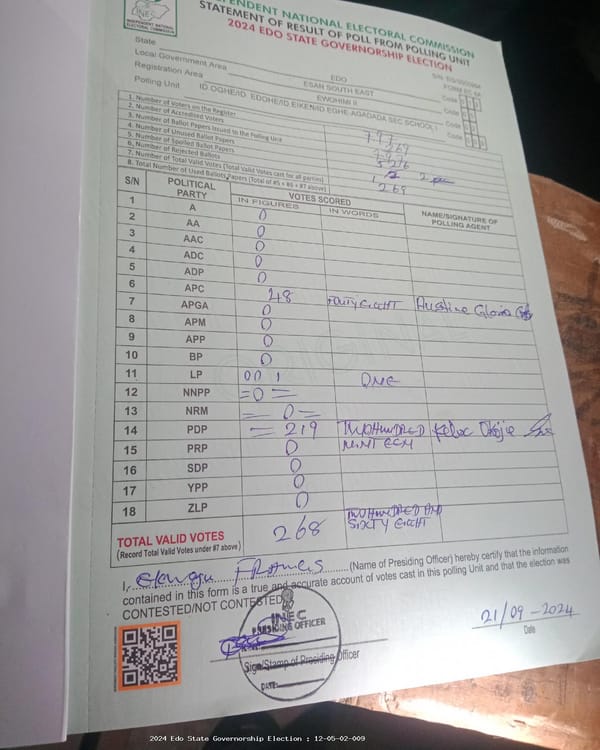 INDEPENDENT NATIONAL ELECTORAL COMMISSION
STATEMENT OF RESULT OF POLL FROM POLLING UNIT
2024 EDO STATE GOVERNORSHIP ELECTION
INEC
INDEPENDENT NATIONAL ELECTORAL COMMISSION
State EDO Code
Local Government Area ESAN SOUTH EAST Code
Registration Area EWOHIMI II Code
Polling Unit ID.OGHE/ID. EDOHE/ID.EIKEN/ID.EGHE-AGADADA SEC SCHOOL I Code
1. Number of Voters on the Register
2. Number of Accredited Voters
3. Number of Ballot Papers Issued to the Polling Unit
4. Number of Unused Ballot Papers
5. Number of Spoiled Ballot Papers
6. Number of Rejected Ballots
7. Number of Total Valid Votes (Total Valid Votes cast for all parties)
8. Total Number of Used Ballots Papers (Total of #5 + #6 + #7 above) 269
S/N POLITICAL PARTY VOTES SCORED NAME/SIGNATURE OF POLLING AGENT
IN FIGURES IN WORDS
1 A 0
2 AA 0
3 AAC 0
4 ADC 0
5 ADP 0
6 APC 48 FOUTY EIGHT Austine Gloria
7 APGA 0
8 APM 0
9 APP 0
10 BP 0
11 LP 001 ONE
12 NNPP =0=
13 NRM = 0=
14 PDP = 219 TWO HUNDRED Kelvc Okojie
NINTEEN
15 PRP 0
16 SDP 0
17 YPP 0
18 ZLP 0
TOTAL VALID VOTES 268 TWO HUNDRED AND
SIXTY EIGHT
(Record Total Valid Votes under #7 above)
I, Francis (Name of Presiding Officer) hereby certify that the information
contained in this form is a true and accurate account of votes cast in this polling Unit and that the election was
CONTESTED/NOT CONTESTED.
INEC
PRESIDING OFFICER
Sign/Stamp of Presiding Officer
DATE:
21/09-2024
Date
2024 Edo State Governorship Election : 12-05-02-009